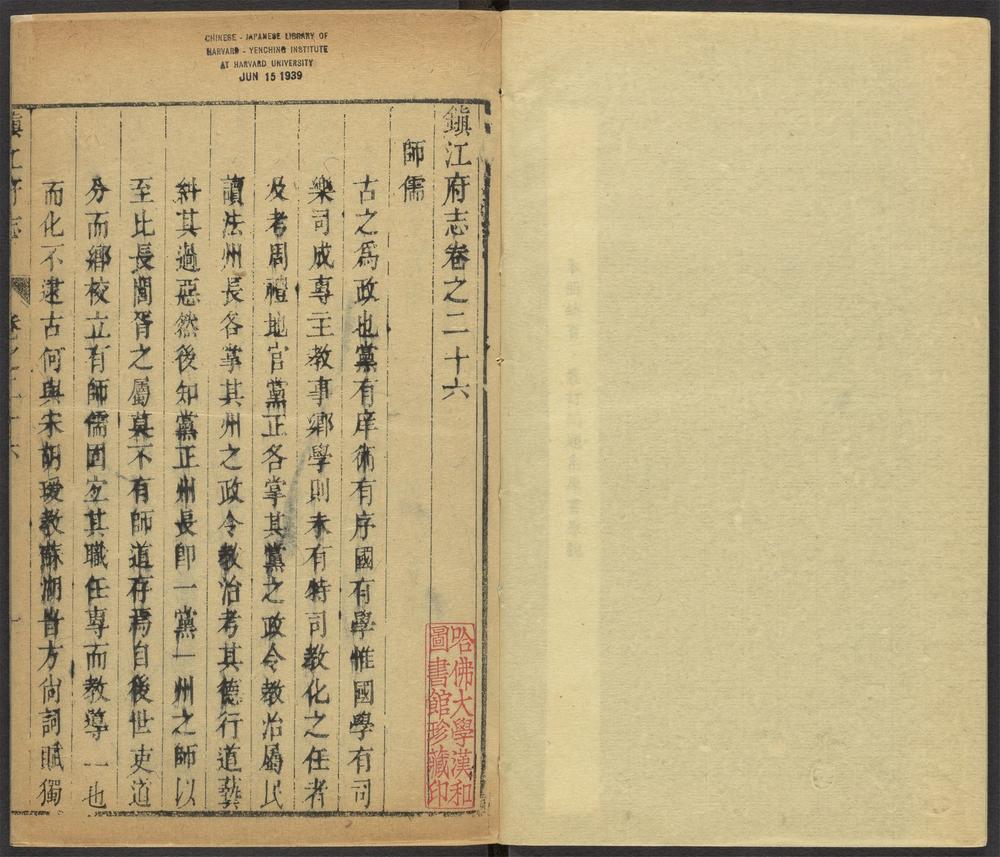 CHINESE - JAPANESE LIBRARY OF
HARVARD - YENCHING INSTITUTE
AT HARVARD UNIVERSITY
JUN 15 1939
鎮江府志卷之二十六
師儒
古之爲政也黨有庠術有序國有學惟國學有司
樂司成專主教事鄉學則未有特司教化之任者
及考周禮地官黨正各掌其黨之政令教治屬民
讀法州長各掌其州之政令教治考其德行道藝
糾其過惡然後知黨正州長即一黨一州之師以
至比長閭胥之屬莫不有師道存焉自後世吏道
分而鄉校立有師儒固宜其職任專而教導一也
而化不逮古何與宋胡瑗教蘇湖昔方尚詞賦獨
哈佛大學漢和
圖書館珍藏印